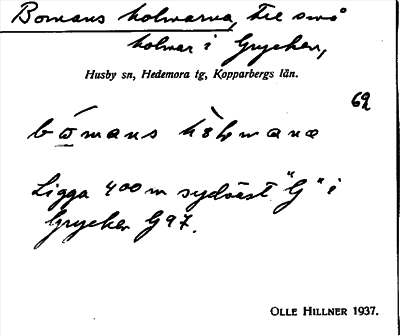 Bomans holmarna, tre små
holmar i Grycken,
Husby sn, Hedemora tg, Kopparbergs län.
62
Ligga 400 m sydväst "G" i
Grycken G 97.
OLLE HILLNER 1937.